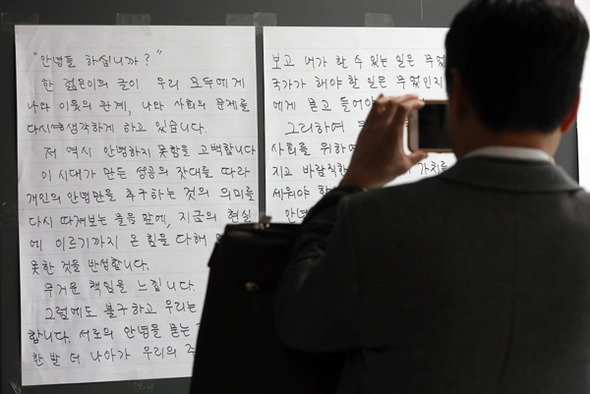 "안녕들 하십니까?"
한 젊은이의 글이 우리 모두에게
나와 이웃의 관계, 나와 사회의 문제를
다시 생각하게 하고 있습니다.
저 역시 안녕하지 못함을 고백합니다
이 시대가 만든 성공의 잣대를 따라
개인의 안녕만을 추구하는 것의 의미를
다시 따져보는 물음 앞에, 지금의 현실
에 이르기까지 온 힘을 다해
못한 것을 반성합니다.
무거운 책임을 느낍니다.
그럼에도 불구하고 우리는
합니다. 서로의 안녕을 묻는
한 발 더 나아가 우리의
보고 내가 할 수 있는 일은
국가가 해야 할 일은 무엇인지
에게 묻고 들어야
그리하여
사회를 위하여
지고 바람직한 가치를
세워야